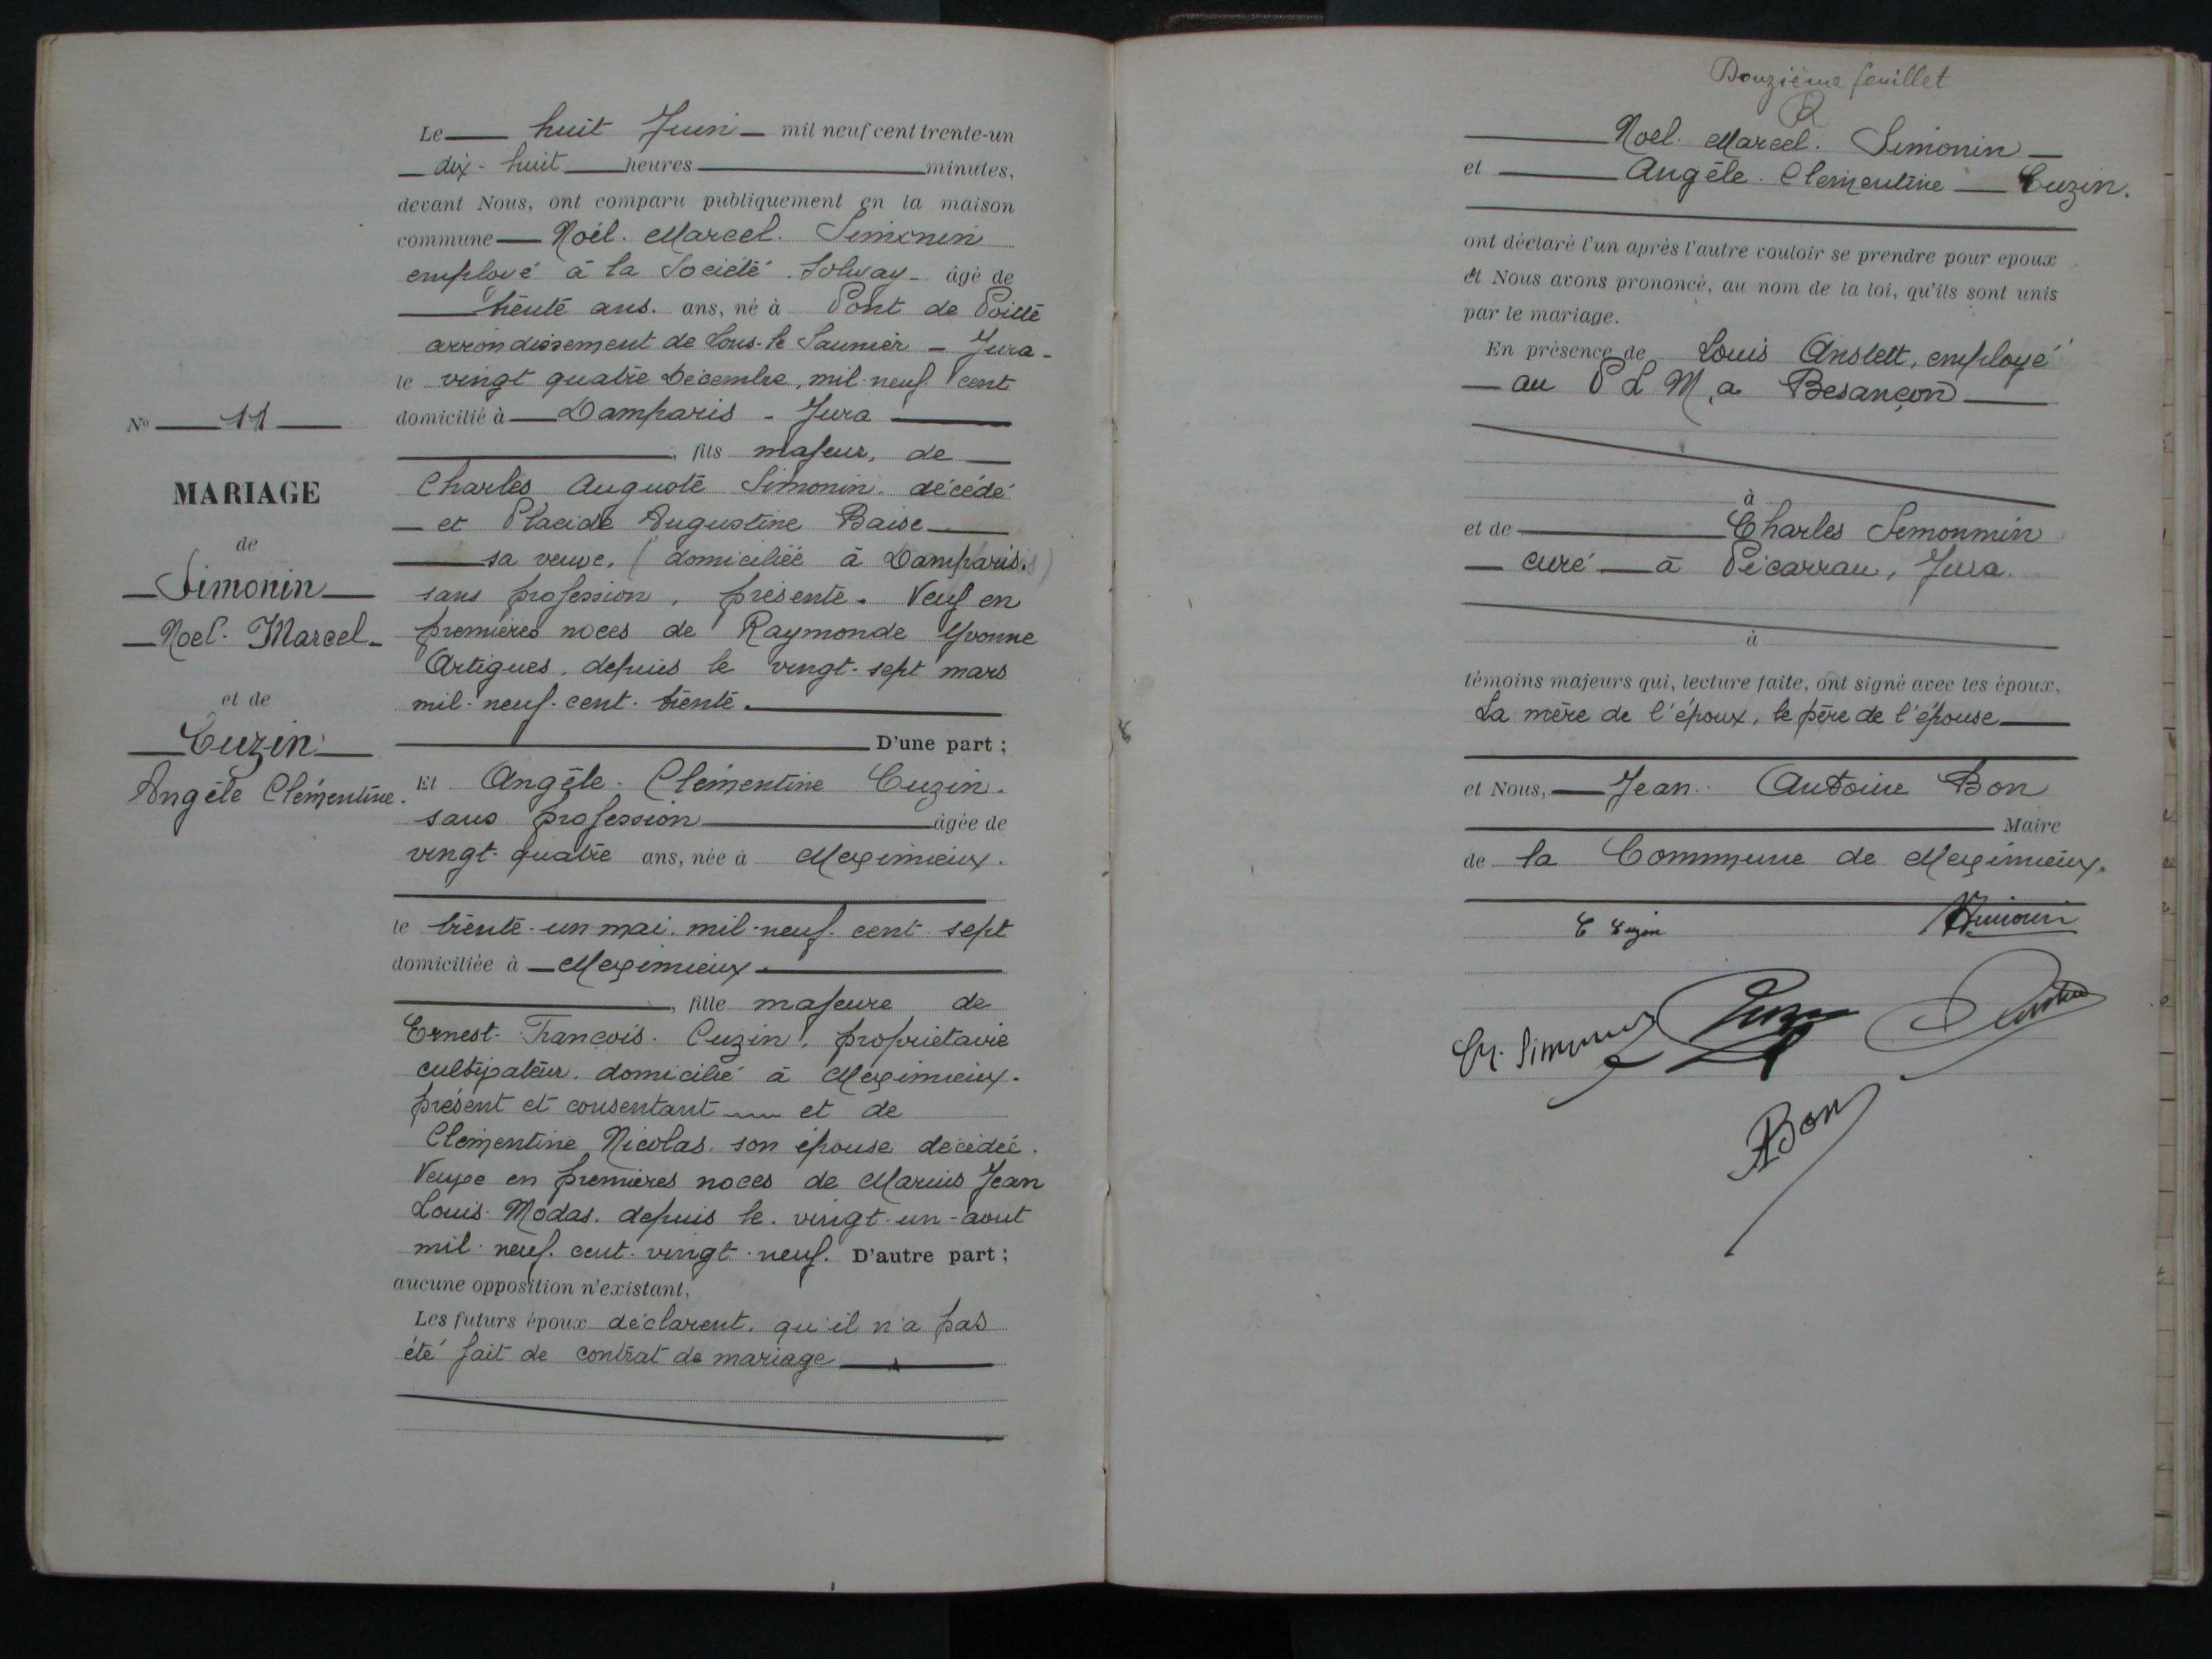 Le huit Juin mil neuf cent trente-un
dix-huit heures minutes,
devant Nous, ont comparu publiquement en la maison
commune Noël. Marcel. Simonin
employé à la Société Solvay - âgé de
trente ans. ans, né à Pont de Poitte
arrondissement de Lons-le Saunier - Jura -
le vingt quatre Décembre, mil neuf cent
domicilié à Damparis - Jura
, fils majeur, de
Charles Auguste Simonin. décédé
et Placide Augustine Baise
sa veuve, (domiciliée à Damparis.)
sans profession, présente. Veuf en
premières noces de Raymonde Yvonne
Artigues, depuis le vingt-sept mars
mil-neuf-cent-trente.
D'une part ;
Et Angèle-Clémentine Cuzin.
sans profession âgée de
vingt-quatre ans, née à Meximieux.
le trente-un mai. mil-neuf-cent-sept
domiciliée à Meximieux.
, fille majeure de
Ernest-François-Cuzin, propriétaire
cultivateur. domicilié à Meximieux.
présent et consentant et de
Clémentine Nicolas. son épouse décédée.
Veuve en premières noces de Marius Jean
Louis Modas. depuis le vingt-un-aout
mil-neuf-cent-vingt-neuf. D'autre part ;
aucune opposition n'existant,
Les futurs époux déclarent. qu'il n'a pas
été fait de contrat de mariage
No 11
MARIAGE
de
Simonin
Noel-Marcel
et de
Cuzin
Angèle Clémentine.
Douzième feuillet
Noel. Marcel. Simonin
et Angèle. Clementine Cuzin.
ont déclaré l'un après l'autre vouloir se prendre pour époux
et Nous avons prononcé, au nom de la loi, qu'ils sont unis
par le mariage.
En présence de Louis Anslett, employé
au P L M, a Besançon
à
et de Charles Simonmin
curé à Picarrau, Jura.
à
témoins majeurs qui, lecture faite, ont signé avec les époux,
La mère de l'époux, le père de l'épouse
et Nous, Jean Antoine Bon
Maire
de la Commune de Meximieux.
Ch. Simonin
ABon